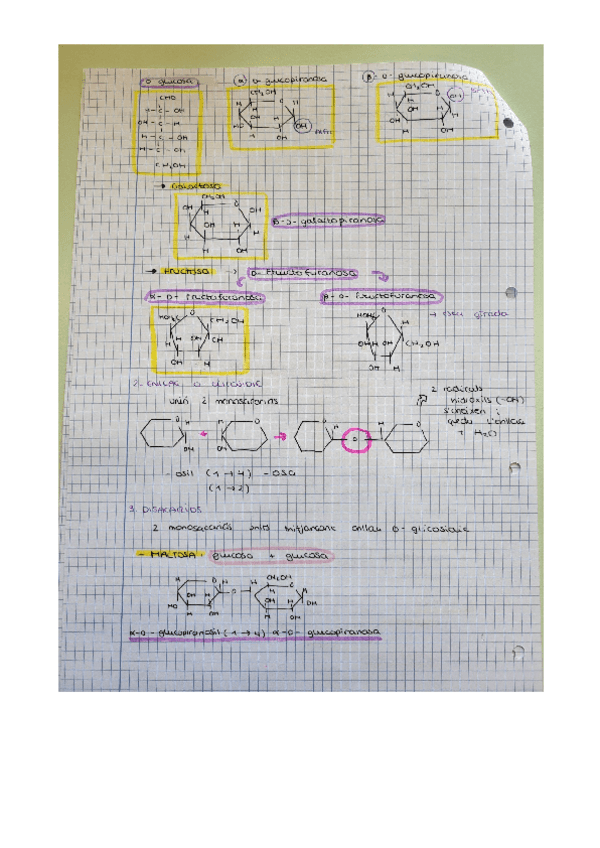 D glucosa   (α) D-glucopiranosa   (β)-D-glucopiranosa
CHO
H-C-OH
OH-C-H
H-C-OH
H-C-OH
CH₂OH
→ Galactosa
CH₂OH
β-D-galactopiranosa
→ Fructosa → D-Fructofuranosa
α-D-Fructofuranosa   β-D-Fructofuranosa
HOH₂C O CH₂OH
2. ENLLAÇ O-GLICOSÍDIC
unir 2 monosacàrids
2 radicals
hidroxils (-OH)
+ H₂O
-osil (1→4) -osa
(1→2)
3. DISACÀRIDS
2 monosacàrids units mitjançant enllaç O-glicosídic
- MALTOSA: glucosa + glucosa
CH₂OH
α-D-glucopiranosil (1→4) α-D-glucopiranosa